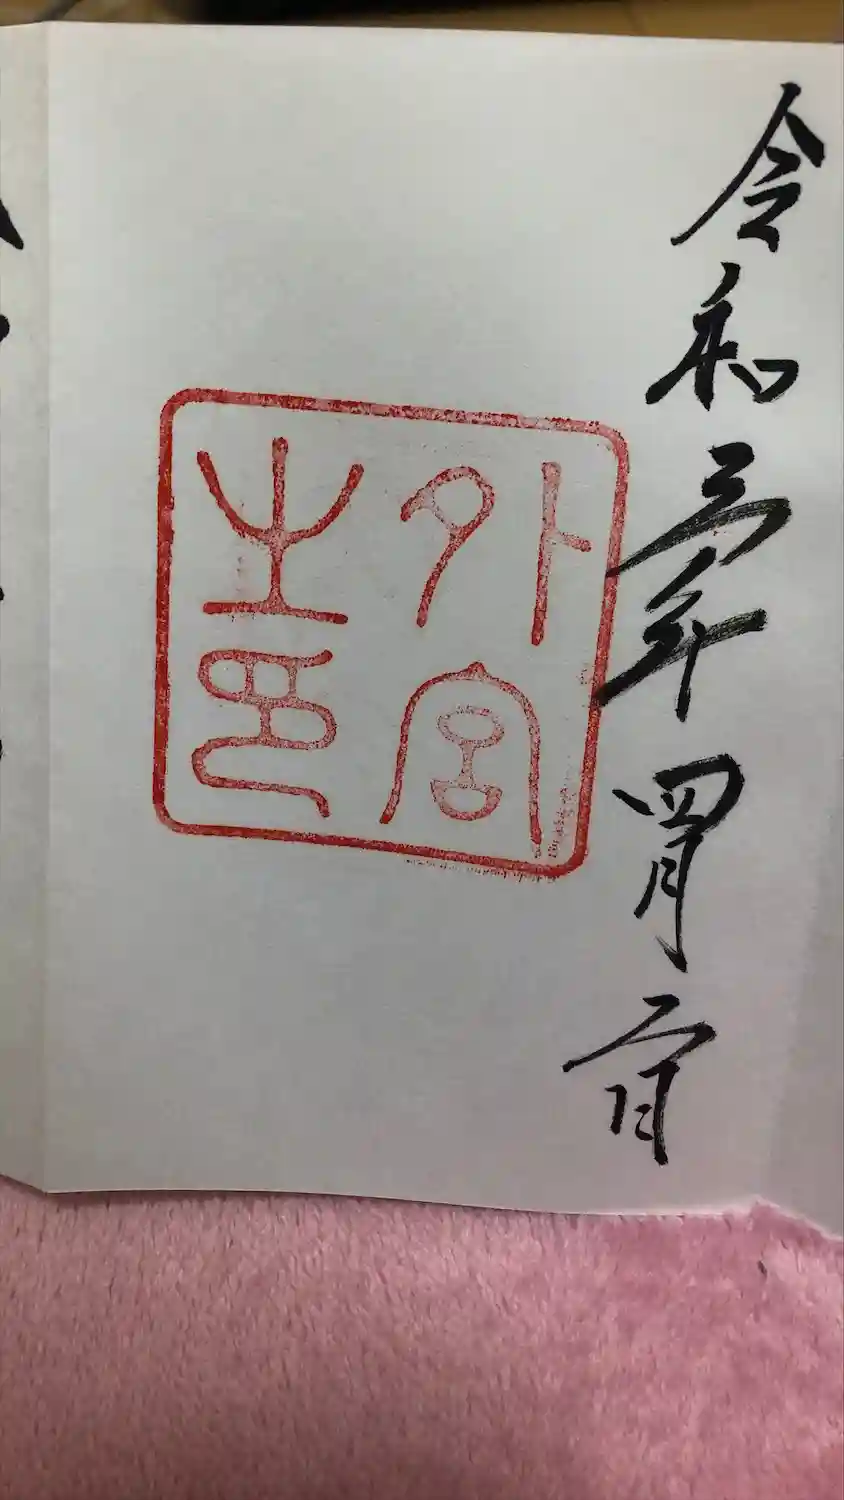 令和三年四月二日
外宮
之印